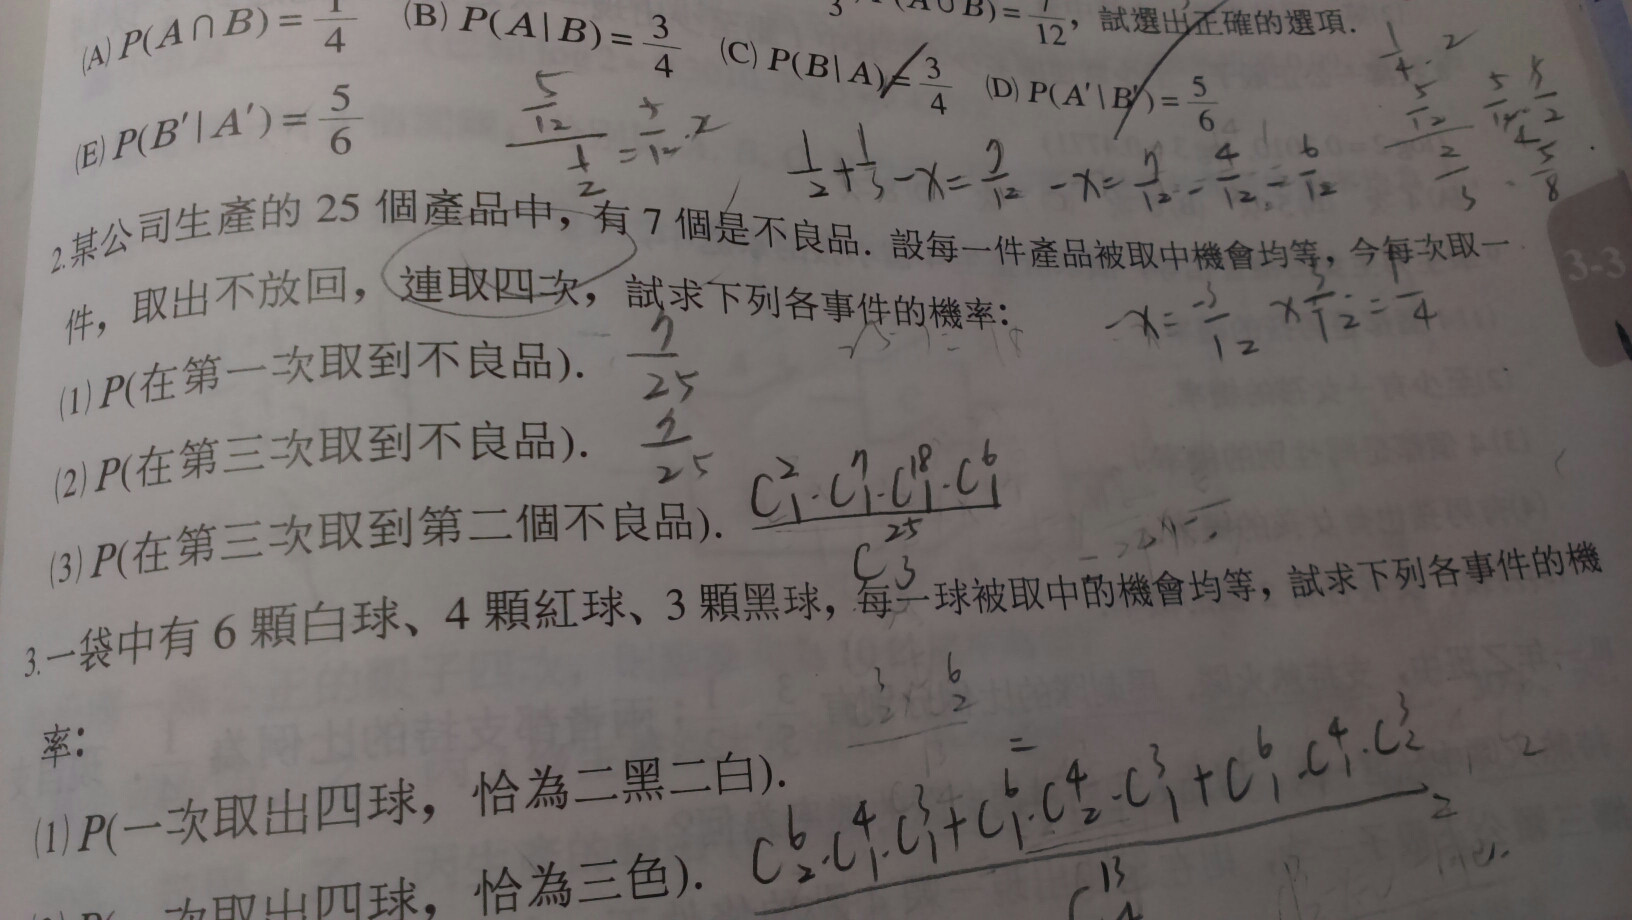 (A) P(A∩B) = 1/4 (B) P(A|B) = 3/4 (C) P(B|A) = 3/4 (D) P(A′|B′) = 5/6
P(A∪B) = 7/12，試選出正確的選項.
(E) P(B′|A′) = 5/6
1/2 + 1/3 - x = 7/12 - x = 7/12 - 4/12 - 6/12
2.某公司生產的 25 個產品中，有 7 個是不良品. 設每一件產品被取中機會均等，今每次取一
件，取出不放回，連取四次，試求下列各事件的機率：
-x = -3/12 x 3/12 = 1/4
(1) P(在第一次取到不良品). 7/25
(2) P(在第三次取到不良品). 7/25
(3) P(在第三次取到第二個不良品). C²₁·C⁷₁·C¹⁸₁·C⁶₁ / C²⁵₃
3.一袋中有 6 顆白球、4 顆紅球、3 顆黑球，每一球被取中的機會均等，試求下列各事件的機
率：
(1) P(一次取出四球，恰為二黑二白).
P(一次取出四球，恰為三色). C⁶₂·C⁴₁·C³₁+C⁶₁·C⁴₂·C³₁+C⁶₁·C⁴₁·C³₂ / C¹³₄
3-3